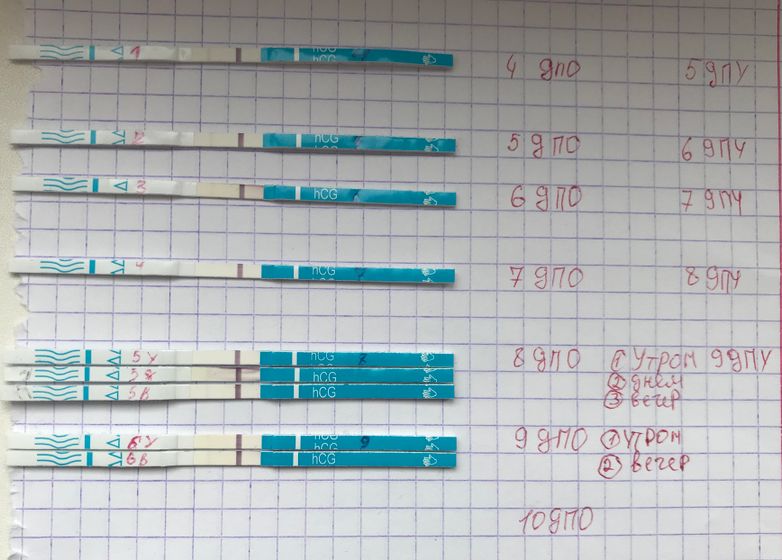 1 hCG 4 дпо 5 дпу
2 hCG 5 дпо 6 дпу
3 hCG 6 дпо 7 дпу
4 hCG 7 дпо 8 дпу
5 У hCG 8 дпо ① Утром 9 дпу
hCG ② днем
5 В hCG ③ вечер
6 У hCG 9 9 дпо ① утром
6 В hCG ② вечер
10 дпо